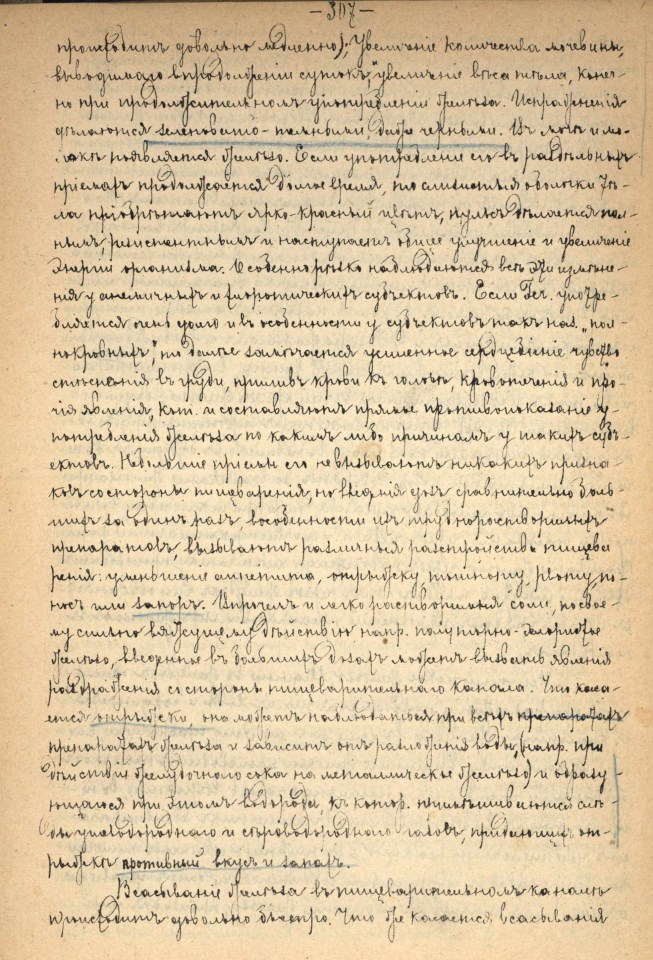 — 307 —
происходитъ довольно медленно); увеличеніе количества мочевины,
выводимаго впродолженіи сутокъ, увеличеніе вѣса тѣла, конеч-
но при продолжительномъ употребленіи желѣза. Испражненія
дѣлаются зеленовато-темными, даже черными. Въ мочѣ и мо-
локѣ появляется желѣзо. Если употребленіе его въ раздѣльныхъ
пріемахъ продолжается долгое время, то слизистыя оболочки тѣ-
ла пріобрѣтаютъ ярко-красный цвѣтъ, пульсъ дѣлается пол-
нымъ, резистентнымъ и наступаетъ общее улучшеніе и увеличеніе
энергіи организма. Особенно рѣзко наблюдаются всѣ эти измѣне-
нія у анемичныхъ и хлоротическихъ субъектовъ. Если Fer. употре-
бляется очень долго и въ особенности у субъектовъ такъ наз. „пол-
нокровныхъ", то далѣе замѣчается усиленное сердцебіеніе чувство
стѣсненія въ груди, приливъ крови къ головѣ, кровотеченія и про-
чія явленія, кот. и составляютъ прямое противопоказаніе у-
потребленія желѣза по какимъ либо причинамъ у такихъ субъ-
ектовъ. Небольшіе пріемы его не вызываютъ никакихъ призна-
ковъ со стороны пищеваренія, но введенія дозъ сравнительно боль-
шихъ за одинъ разъ, въ особенности изъ труднорастворимыхъ
препаратовъ, вызываютъ различныя разстройства пищева
ренія: уменьшеніе аппетита, отрыжку, тошноту, рвоту по-
носъ или запоръ. Впрочемъ и легко растворимыя соли, по свое-
му сильно вяжущему дѣйствію напр. полуторно-хлористое
желѣзо, введенное въ большихъ дозахъ можетъ вызвать явленія
раздраженія со стороны пищеварительнаго канала. Что каса-
ется отрыжки, она можетъ наблюдаться при всѣхъ препаратахъ
препаратахъ желѣза и зависитъ отъ разложенія воды, (напр. при
дѣйствіи желудочного сока на металлическое желѣзо) и образу-
ющагося при этомъ водорода, къ котор. примѣшиваются слѣ-
ды углеводороднаго и сѣроводороднаго газовъ, придающихъ от-
рыжкѣ противный вкусъ и запахъ.
Всасываніе желѣза въ пищеварительномъ каналѣ
происходитъ довольно быстро. Что же касается всасыванія